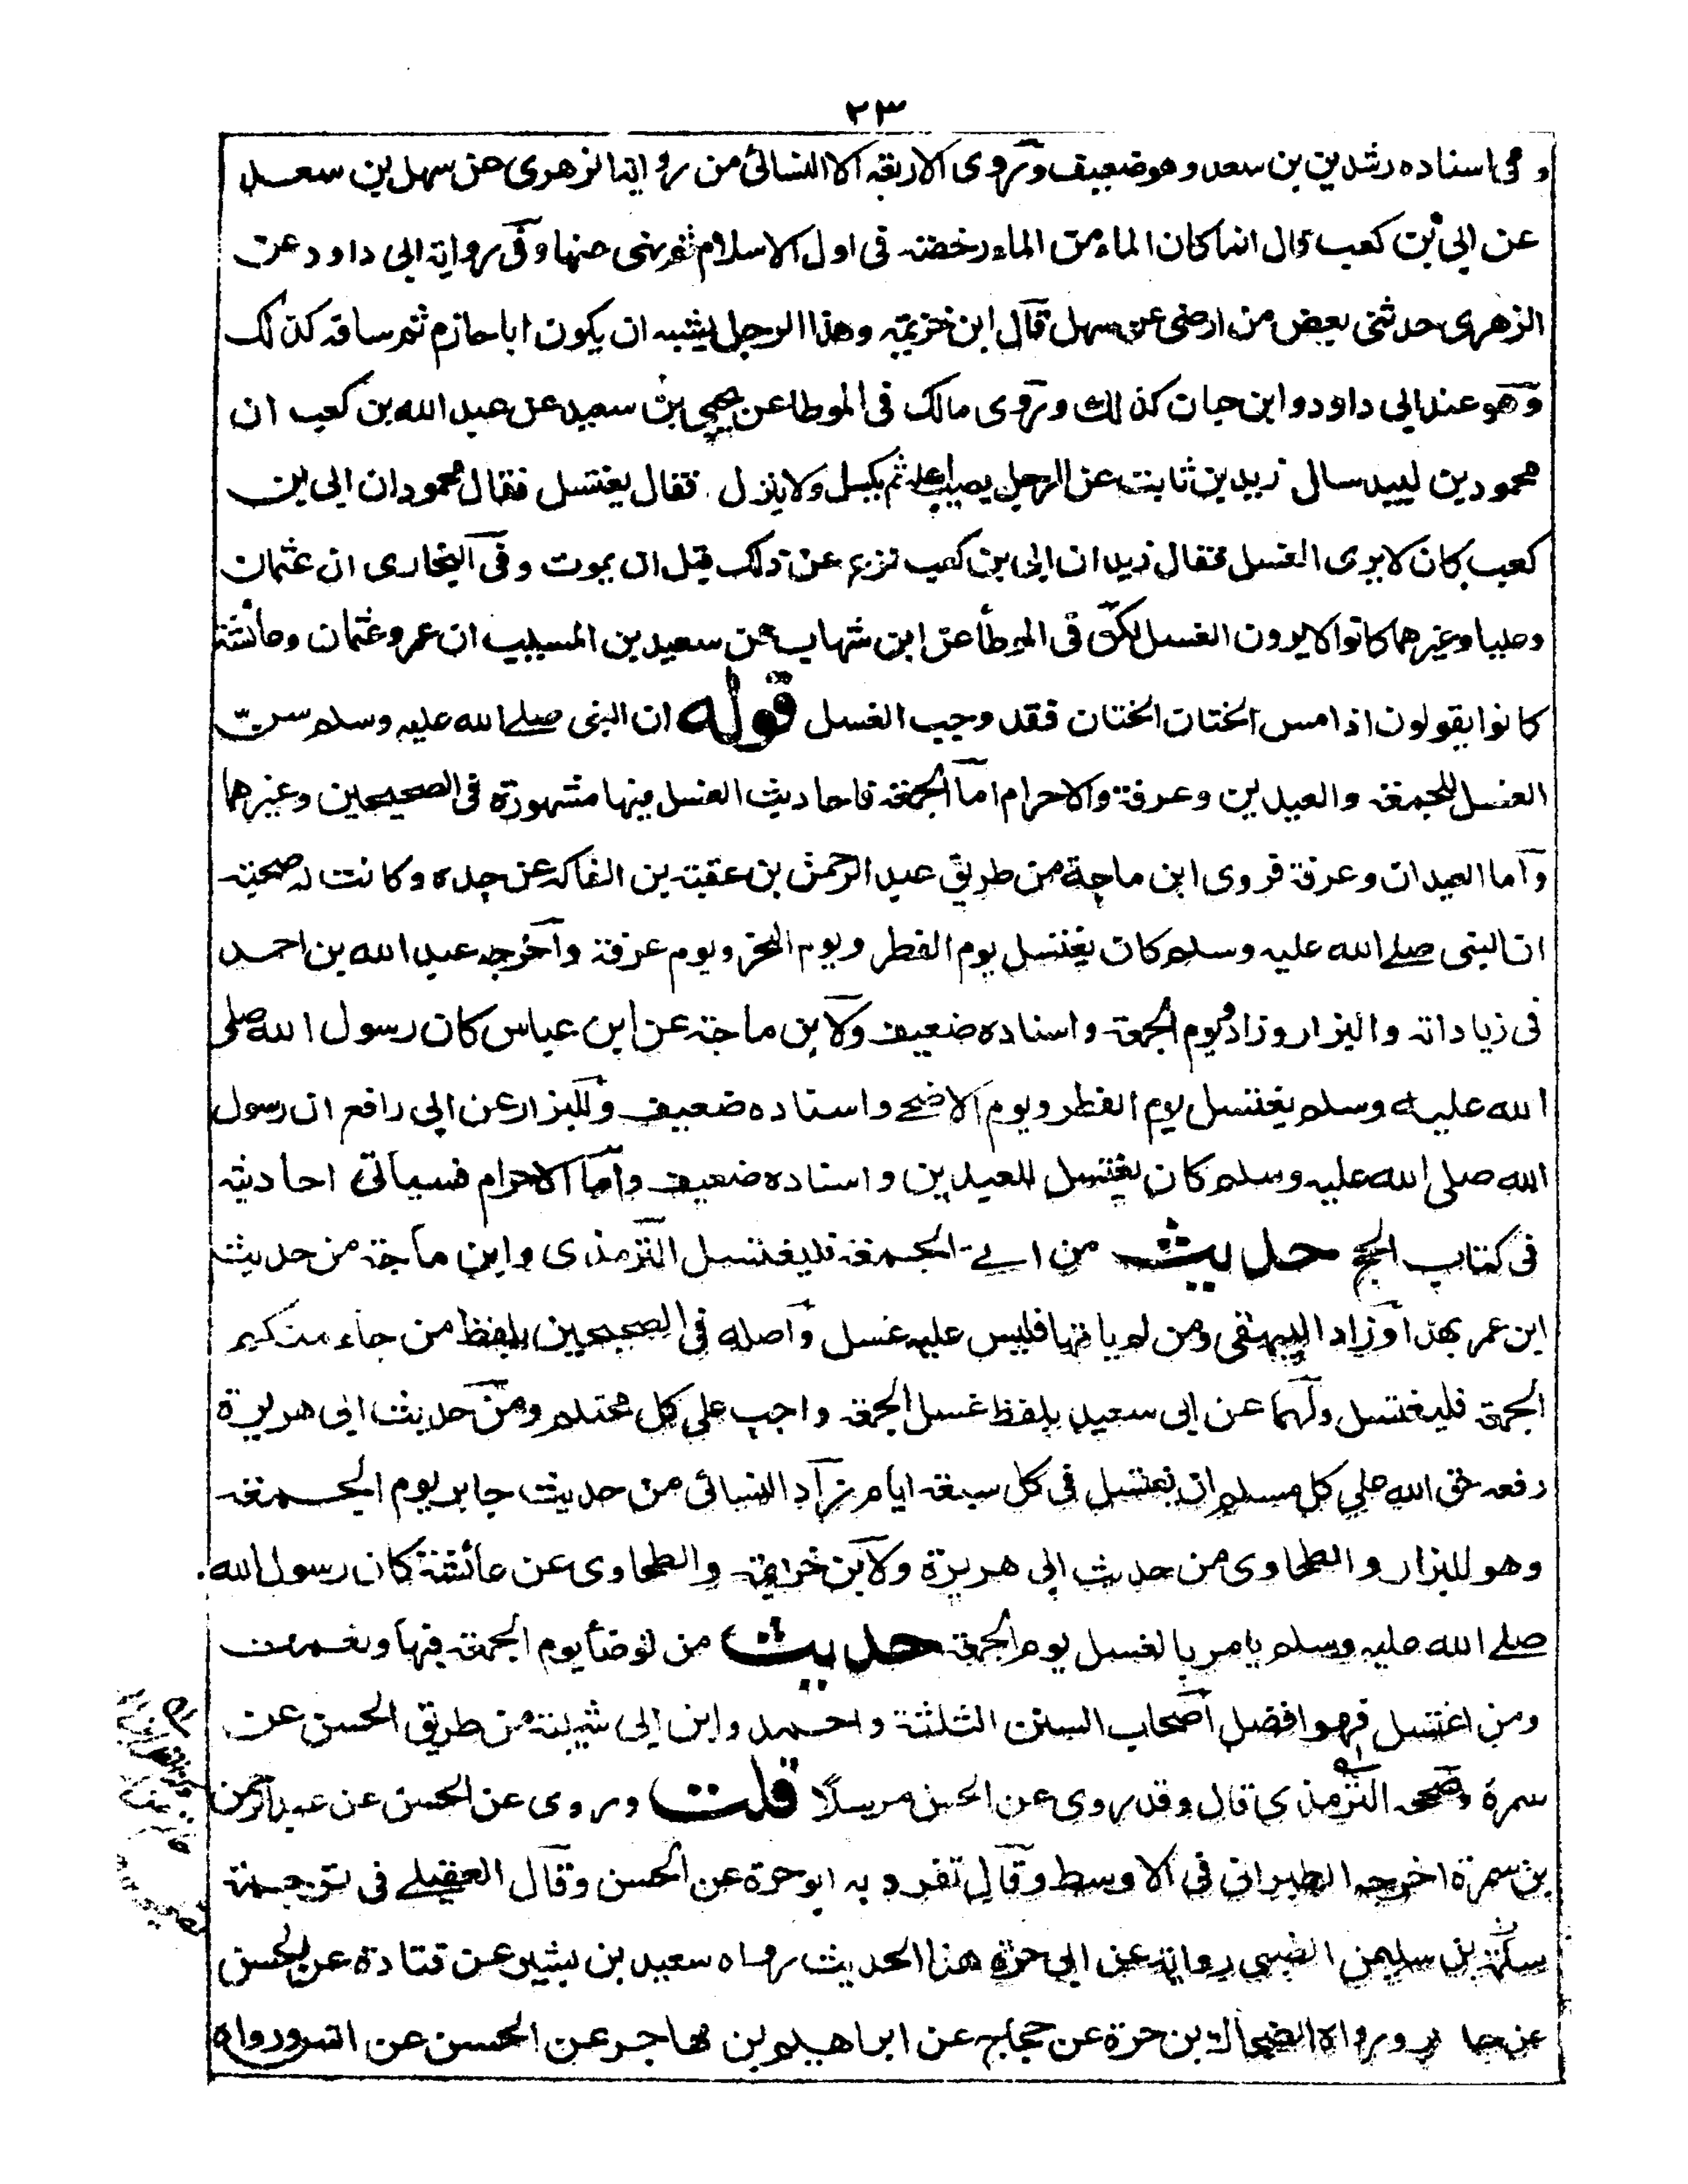 ٢٣
وفی اسناده رشدین بن سعد وهو ضعیف وروی الاربعة الا النسائی من روایة الزهری عن سهل بن سعد
عن ابی بن کعب قال انما کان الماء من الماء رخصة فی اول الاسلام ثم نهی عنها وفی روایة ابی داود عن
الزهری حدثنی بعض من ارضی عن سهل قال ابن خزیمة وهذا الرجل یشبه ان یکون ابا حازم ثم ساقه کذلک
وهو عند ابی داود وابن حبان کذلک وروی مالک فی الموطا عن یحیی بن سعید عن عبد الله بن کعب ان
محمود بن لبید سال زید بن ثابت عن الرجل یصیب اهله ثم یکسل ولا ینزل فقال یغتسل فقال محمود ان ابی بن
کعب کان لا یری الغسل فقال زید ان ابی بن کعب نزع عن ذلک قبل ان یموت وفی البخاری ان عثمان
وعلیا وغیرهما کانوا لا یرون الغسل لکن فی الموطأ عن ابن شهاب عن سعید بن المسیب ان عمر وعثمان وعائشة
کانوا یقولون اذا مس الختان الختان فقد وجب الغسل قوله ان النبی صلے الله علیه وسلم سنّ
الغسل للجمعة والعیدین وعرفة والاحرام اما الجمعة فاحادیث الغسل فیها مشهورة فی الصحیحین وغیرهما
واما العیدان وعرفة فروی ابن ماجة من طریق عبد الرحمن بن عقبة بن الفاکه عن جده وکانت له صحبة
ان النبی صلے الله علیه وسلم کان یغتسل یوم الفطر ویوم النحر ویوم عرفة واخرجه عبد الله بن احمد
فی زیاداته والبزار وزاد ویوم الجمعة واسناده ضعیف ولابن ماجة عن ابن عباس کان رسول الله صلی
الله علیه وسلم یغتسل یوم الفطر ویوم الاضحے واسناده ضعیف وللبزار عن ابی رافع ان رسول
الله صلی الله علیه وسلم کان یغتسل للعیدین واسناده ضعیف واما الاحرام فسیاتی احادیثه
فی کتاب الحج حدیث من اتے الجمعة فلیغتسل الترمذی وابن ماجة من حدیث
ابن عمر بهذا وزاد البیهقی ومن لم یاتها فلیس علیه غسل واصله فی الصحیحین بلفظ من جاء منکم
الجمعة فلیغتسل ولهما عن ابی سعید بلفظ غسل الجمعة واجب علی کل محتلم ومن حدیث ابی هریرة
رفعه حق الله علی کل مسلم ان یغتسل فی کل سبعة ایام زاد النسائی من حدیث جابر یوم الجمعة
وهو للبزار والطحاوی من حدیث ابی هریرة ولابن خزیمة والطحاوی عن عائشة کان رسول الله
صلے الله علیه وسلم یامر بالغسل یوم الجمعة حدیث من توضأ یوم الجمعة فبها ونعمت
ومن اغتسل فهو افضل اصحاب السنن الثلثة واحمد وابن ابی شیبة من طریق الحسن عن
سمرة وصححه الترمذی قال وقد روی عن الحسن مرسلا قلت وروی عن الحسن عن عبد الرحمن
بن سمرة اخرجه الطبرانی فی الاوسط وقال تفرد به ابو حرة عن الحسن وقال العقیلے فی ترجمة
بن سلیمن الضبی روایة عن ابی حرة هذا الحدیث رواه سعید بن بشیر عن قتادة عن الحسن
عن جابر ورواه الضحاک بن حمزة عن حجاج عن ابراهیم بن مهاجر عن الحسن عن انس ورواه